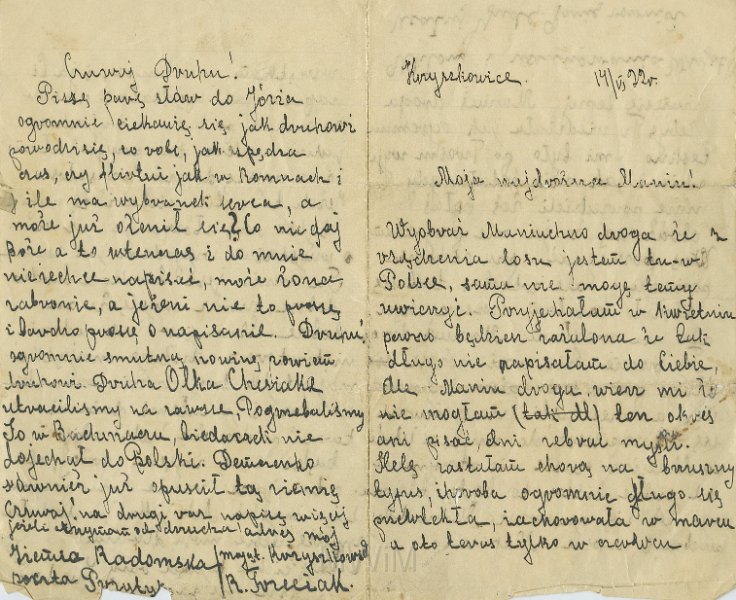 Czuwaj Druhu!
Piszę parę słów do Józia
ogromnie ciekawię się jak druhowi
powodzi się, co robi, jak spędza
czas, czy flirtuje jak w Romnach i
ile ma wybranek serca, a
może już ożenił się? Co nie daj
Boże a to wtenczas i do mnie
nie zechce napisać, może żona
zabronie, a jeżeli nie to proszę
i bardzo proszę o napisanie. Druhu,
ogromnie smutną nowinę powiem
druhowi. Druha Olka Chesiaka
utraciliśmy na zawsze, Pogrzebaliśmy
Go w Bachmaczu, biedaczek nie
dojechał do Polski. Demurenko
również już opuścił tą ziemię
Czuwaj, na drugi raz napiszę więcej
jeżeli otrzymam od druha adres mój
Irena Radomska / majęt. Kryszkowice
poczta Przytyk / R. Trzeciak.
Kryszkowice. 14/VI 22r.
Moja najdroższa Maniu!
Wyobraź Maniuchno droga że z
rządzenia losu jestem tu w
Polsce, sama nie mogę temu
uwierzyć. Przyjechałam w kwietniu
pewno będziesz zdziwiona że tak
długo nie pisałam do Ciebie,
Ale Maniu droga, wierz mi że
nie mogłam (tak dł) ten okres
ani pisać ani zebrać myśli.
Helę zastałam chorą na brzuszny
tyfus, choroba ogromnie długo się
przewlekła, zachorowała w marcu
a oto teraz tylko w czerwcu